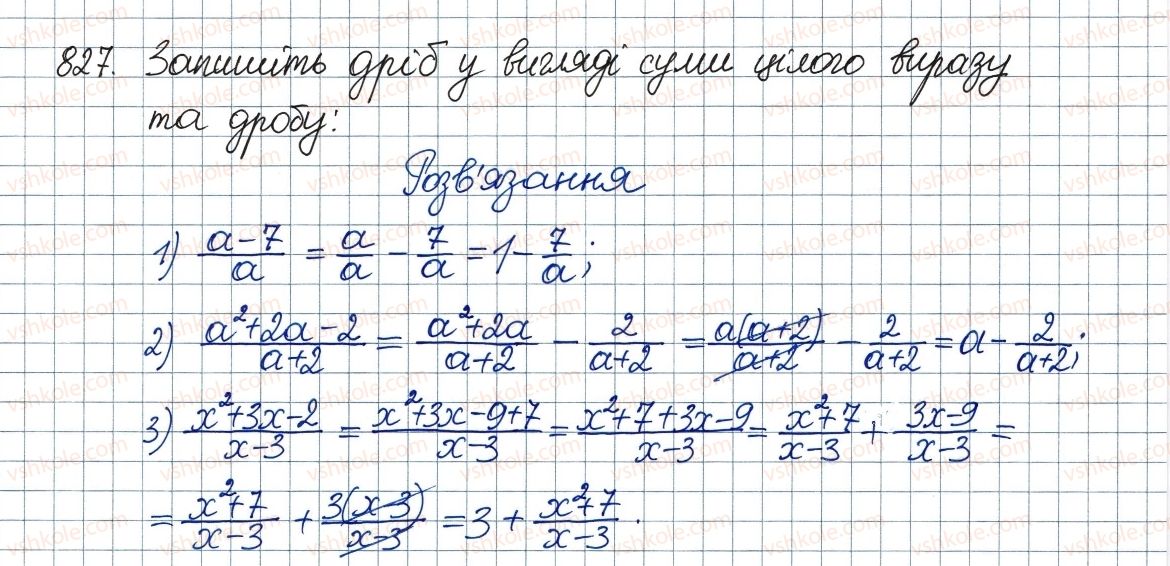 827. Запишіть дріб у вигляді суми цілого виразу
та дробу:
Розв'язання
1) \frac{a-7}{a} = \frac{a}{a} - \frac{7}{a} = 1 - \frac{7}{a};
2) \frac{a^2+2a-2}{a+2} = \frac{a^2+2a}{a+2} - \frac{2}{a+2} = \frac{a(a+2)}{a+2} - \frac{2}{a+2} = a - \frac{2}{a+2};
3) \frac{x^2+3x-2}{x-3} = \frac{x^2+3x-9+7}{x-3} = \frac{x^2+7+3x-9}{x-3} = \frac{x^2+7}{x-3} + \frac{3x-9}{x-3} =
= \frac{x^2+7}{x-3} + \frac{3(x-3)}{x-3} = 3 + \frac{x^2+7}{x-3}.